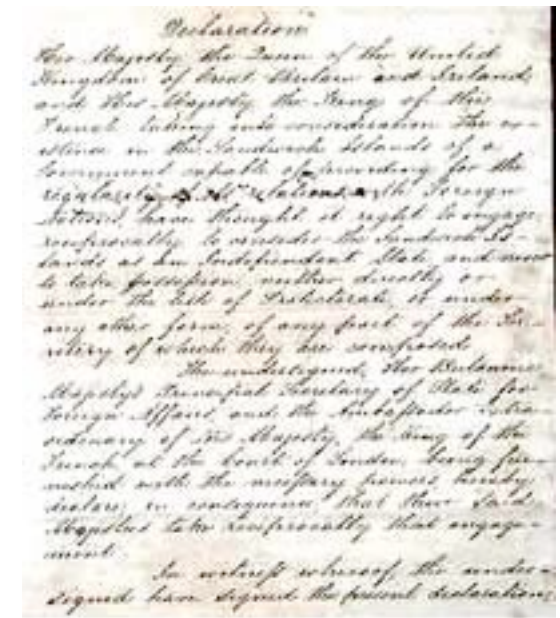 Declaration
Her Majesty the Queen of the United
Kingdom of Great Britain and Ireland,
and His Majesty the King of the
French, taking into consideration the ex-
istence in the Sandwich Islands of a
Government capable of providing for the
regularity of its relations with Foreign
Nations, have thought it right to engage
reciprocally to consider the Sandwich Is-
lands as an Independent State, and never
to take possession, neither directly or
under the title of Protectorate, or under
any other form, of any part of the Ter-
ritory of which they are composed.
The undersigned, Her Britannic
Majesty's Principal Secretary of State for
Foreign Affairs, and the Ambassador Extra-
ordinary of His Majesty, the King of the
French at the Court of London, being fur-
nished with the necessary powers, hereby
declare, in consequence, that their said
Majesties take reciprocally that engage-
ment.
In witness whereof, the under-
signed have signed the present declaration,